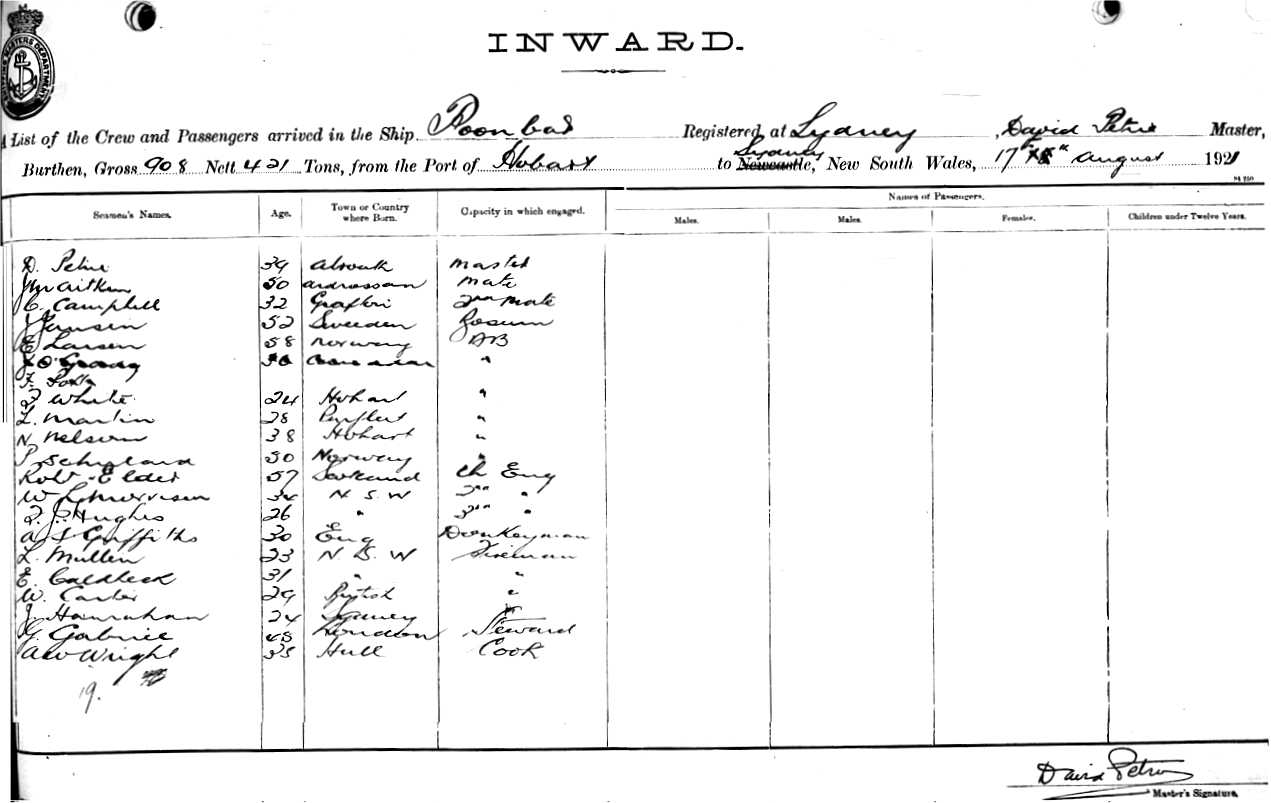 SHIPPING MASTERS DEPARTMENT
INWARD.
A List of the Crew and Passengers arrived in the Ship Poonbar Registered at Sydney, David Petrie Master,
Burthen, Gross 908 Nett 421 Tons, from the Port of Hobart to Newcastle, Sydney New South Wales, 17th August 1921
Seamen's Names. Age. Town or Country where Born. Capacity in which engaged. Names of Passengers.
Males. Males. Females. Children under Twelve Years.
D. Petrie 39 Master
J M Aitken 50 Ardrossan Mate
C. Campbell 32 Grafton 2nd Mate
J Jansen 52 Sweden Bosun
E Larsen 58 Norway AB
"
F.
White 24 Hobart "
L. Martin 28 "
N Nelson 38 Hobart "
P 50 Norway "
Robt Elder 57 Scotland Ch Eng
W L Morrison 34 N S W 2nd "
Hughes 26 " 3rd "
A J Griffiths 30 Eng Donkeyman
L. Mullen 23 N. S. W Fireman
E. Caldbeck 31 " "
W. Carter 29 British "
J. Hanrahan 24 Sydney "
G. Gabriel 48 London Steward
A W Wright 35 Hull Cook
19.
David Petrie
Master's Signature.